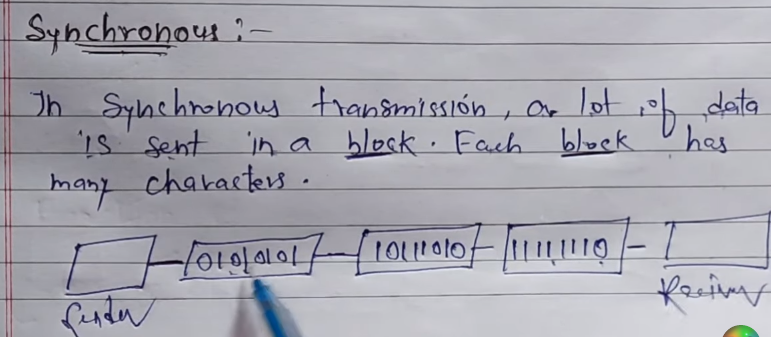 Synchronous :-
In Synchronous transmission, a lot of data
is sent in a block. Each block has
many characters.
01010101 10111010 11111110
Sender Reciver